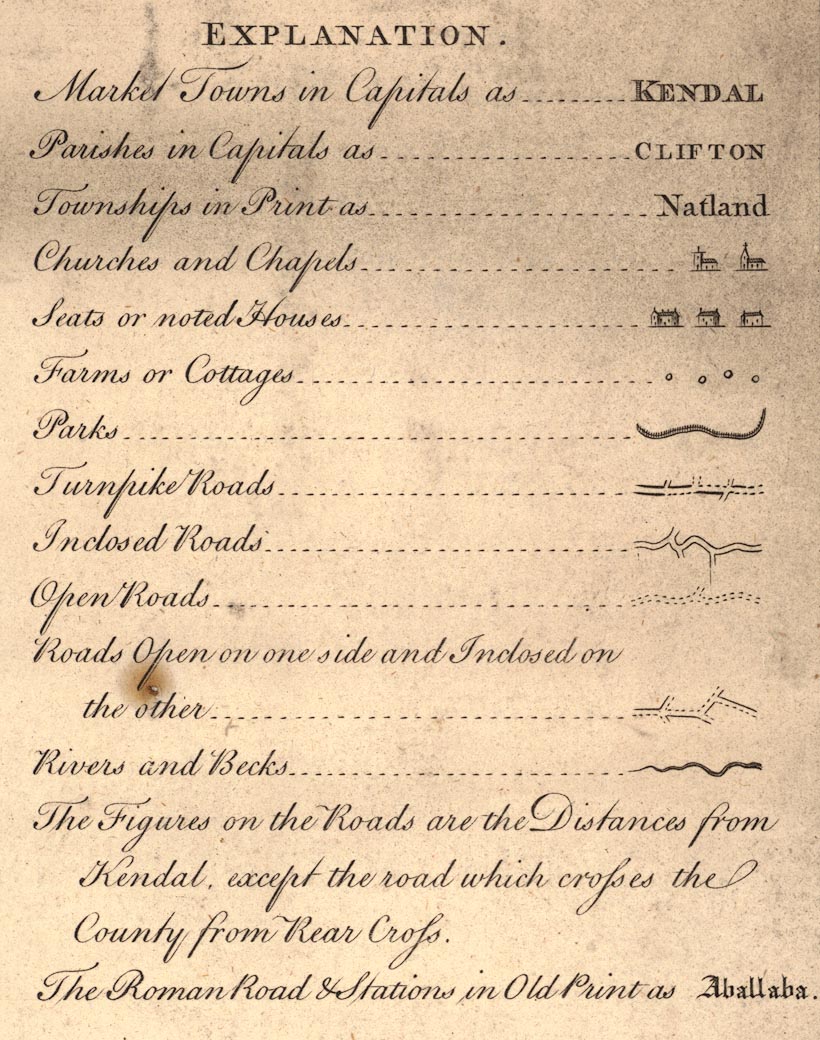 EXPLANATION.
Market Towns in Capitals as KENDAL
Parishes in Capitals as CLIFTON
Townships in Print as Natland
Churches and Chapels
Seats or noted Houses
Farms or Cottages
Parks
Turnpike Roads
Inclosed Roads
Open Roads
Roads Open on one side and Inclosed on
the other
Rivers and Becks
The Figures on the Roads are the Distances from
Kendal, except the road which croſses the
County from Rear Croſs.
The Roman Road & Stations in Old Print as Aballaba.